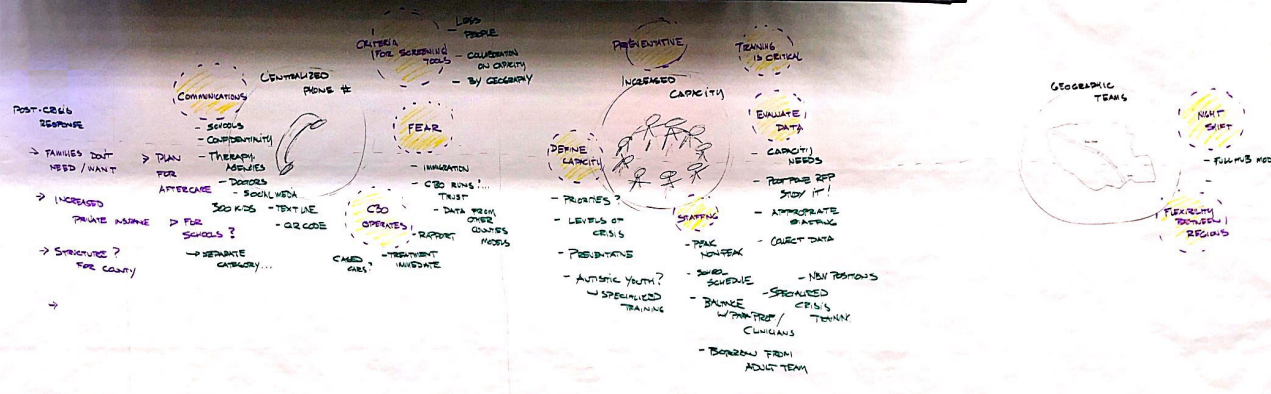 POST-CRISIS
RESPONSE
→ FAMILIES DON'T
NEED / WANT
→ INCREASED
PRIVATE INSURANCE
→ STRUCTURE?
FOR COUNTY
→
> PLAN
FOR
AFTERCARE
> FOR
SCHOOLS?
COMMUNICATIONS
- SCHOOLS
- CONFIDENTIALITY
- THERAPY
AGENCIES
- DOCTORS
- SOCIAL MEDIA
300 KIDS
- TEXT LINE
- QR CODE
→ SEPARATE
CATEGORY...
CENTRALIZED
PHONE #
CRITERIA
FOR SCREENING
TOOLS
- LESS
PEOPLE
- COLLABORATION
ON CAPACITY
- BY GEOGRAPHY
FEAR
- IMMIGRATION
- CBO RUNS!...
TRUST
- DATA FROM
OTHER
COUNTIES
MODELS
CBO
OPERATES
- RAPPORT
- TREATMENT
IMMEDIATE
CARS?
PREVENTATIVE
INCREASED
CAPACITY
DEFINE
CAPACITY
- PRIORITIES?
- LEVELS OF
CRISIS
- PREVENTATIVE
- AUTISTIC YOUTH?
→ SPECIALIZED
TRAINING
STAFFING
- PEAK
NONPEAK
- SCHOOL
SCHEDULE
- BALANCE
W/ PARAPROF /
CLINICIANS
- BORROW FROM
ADULT TEAM
- NEW POSITIONS
- SPECIALIZED
CRISIS
TRAINING
TRAINING
IS CRITICAL
EVALUATE
DATA
- CAPACITY
NEEDS
- POSTPONE RFP
STUDY IT!
- APPROPRIATE
STAFFING
- COLLECT DATA
GEOGRAPHIC
TEAMS
NIGHT
SHIFT
- FULL HUB MOD
FLEXIBILITY
BETWEEN
REGIONS